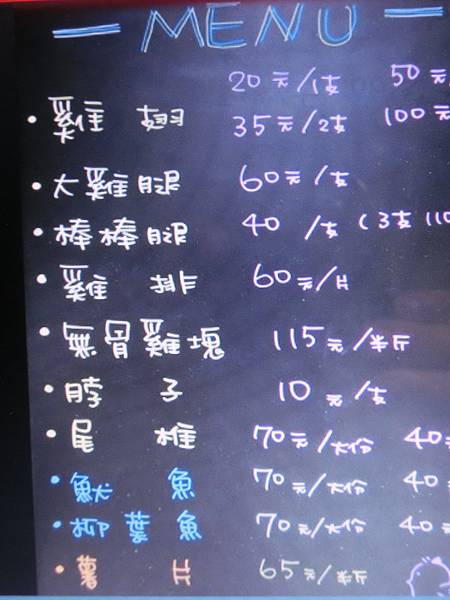 MENU
20元/1支 50元
• 雞翅 35元/2支 100元
• 大雞腿 60元/支
• 棒棒腿 40 /支 (3支110
• 雞排 60元/片
• 無骨雞塊 115元/半斤
• 脖子 10元/支
• 尾椎 70元/大份 40
• 魷魚 70元/大份 40
• 柳葉魚 70元/大份 40
• 薯片 65元/半斤